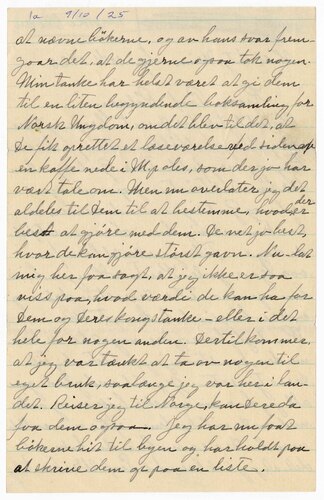 1a 9/10/25
at nævne bökerne, og av hans svar frem-
gaar det, at de gjerne ogsaa tok nogen.
Min tanke har helst været at gi dem
til en liten begyndende boksamling for
Norsk Ungdom, om det blev til det, at
De fik oprettet et læseværelse ved siden av
en kaffe nede i M.poles, som der jo har
vært tale om. Men nu overlater jeg det
aldeles til Dem til at bestemme, hvad der er
best at gjöre med dem. De vet jo best,
hvor de kan gjöre störst gavn. Nu - lat
mig her faa sagt, at jeg ikke er saa
viss paa, hvad værdi de kan ha for
Dem og Deres kongstanke - eller i det
hele for nogen anden. Dertil kommer,
at jeg var tænkt at ta av nogen til
eget bruk, saalænge jeg var her i lan-
det. Reiser jeg til Norge, kan De da
faa dem ogsaa. Jeg har nu faat
bökerne hit til byen og har holdt paa
at skrive dem op paa en liste.